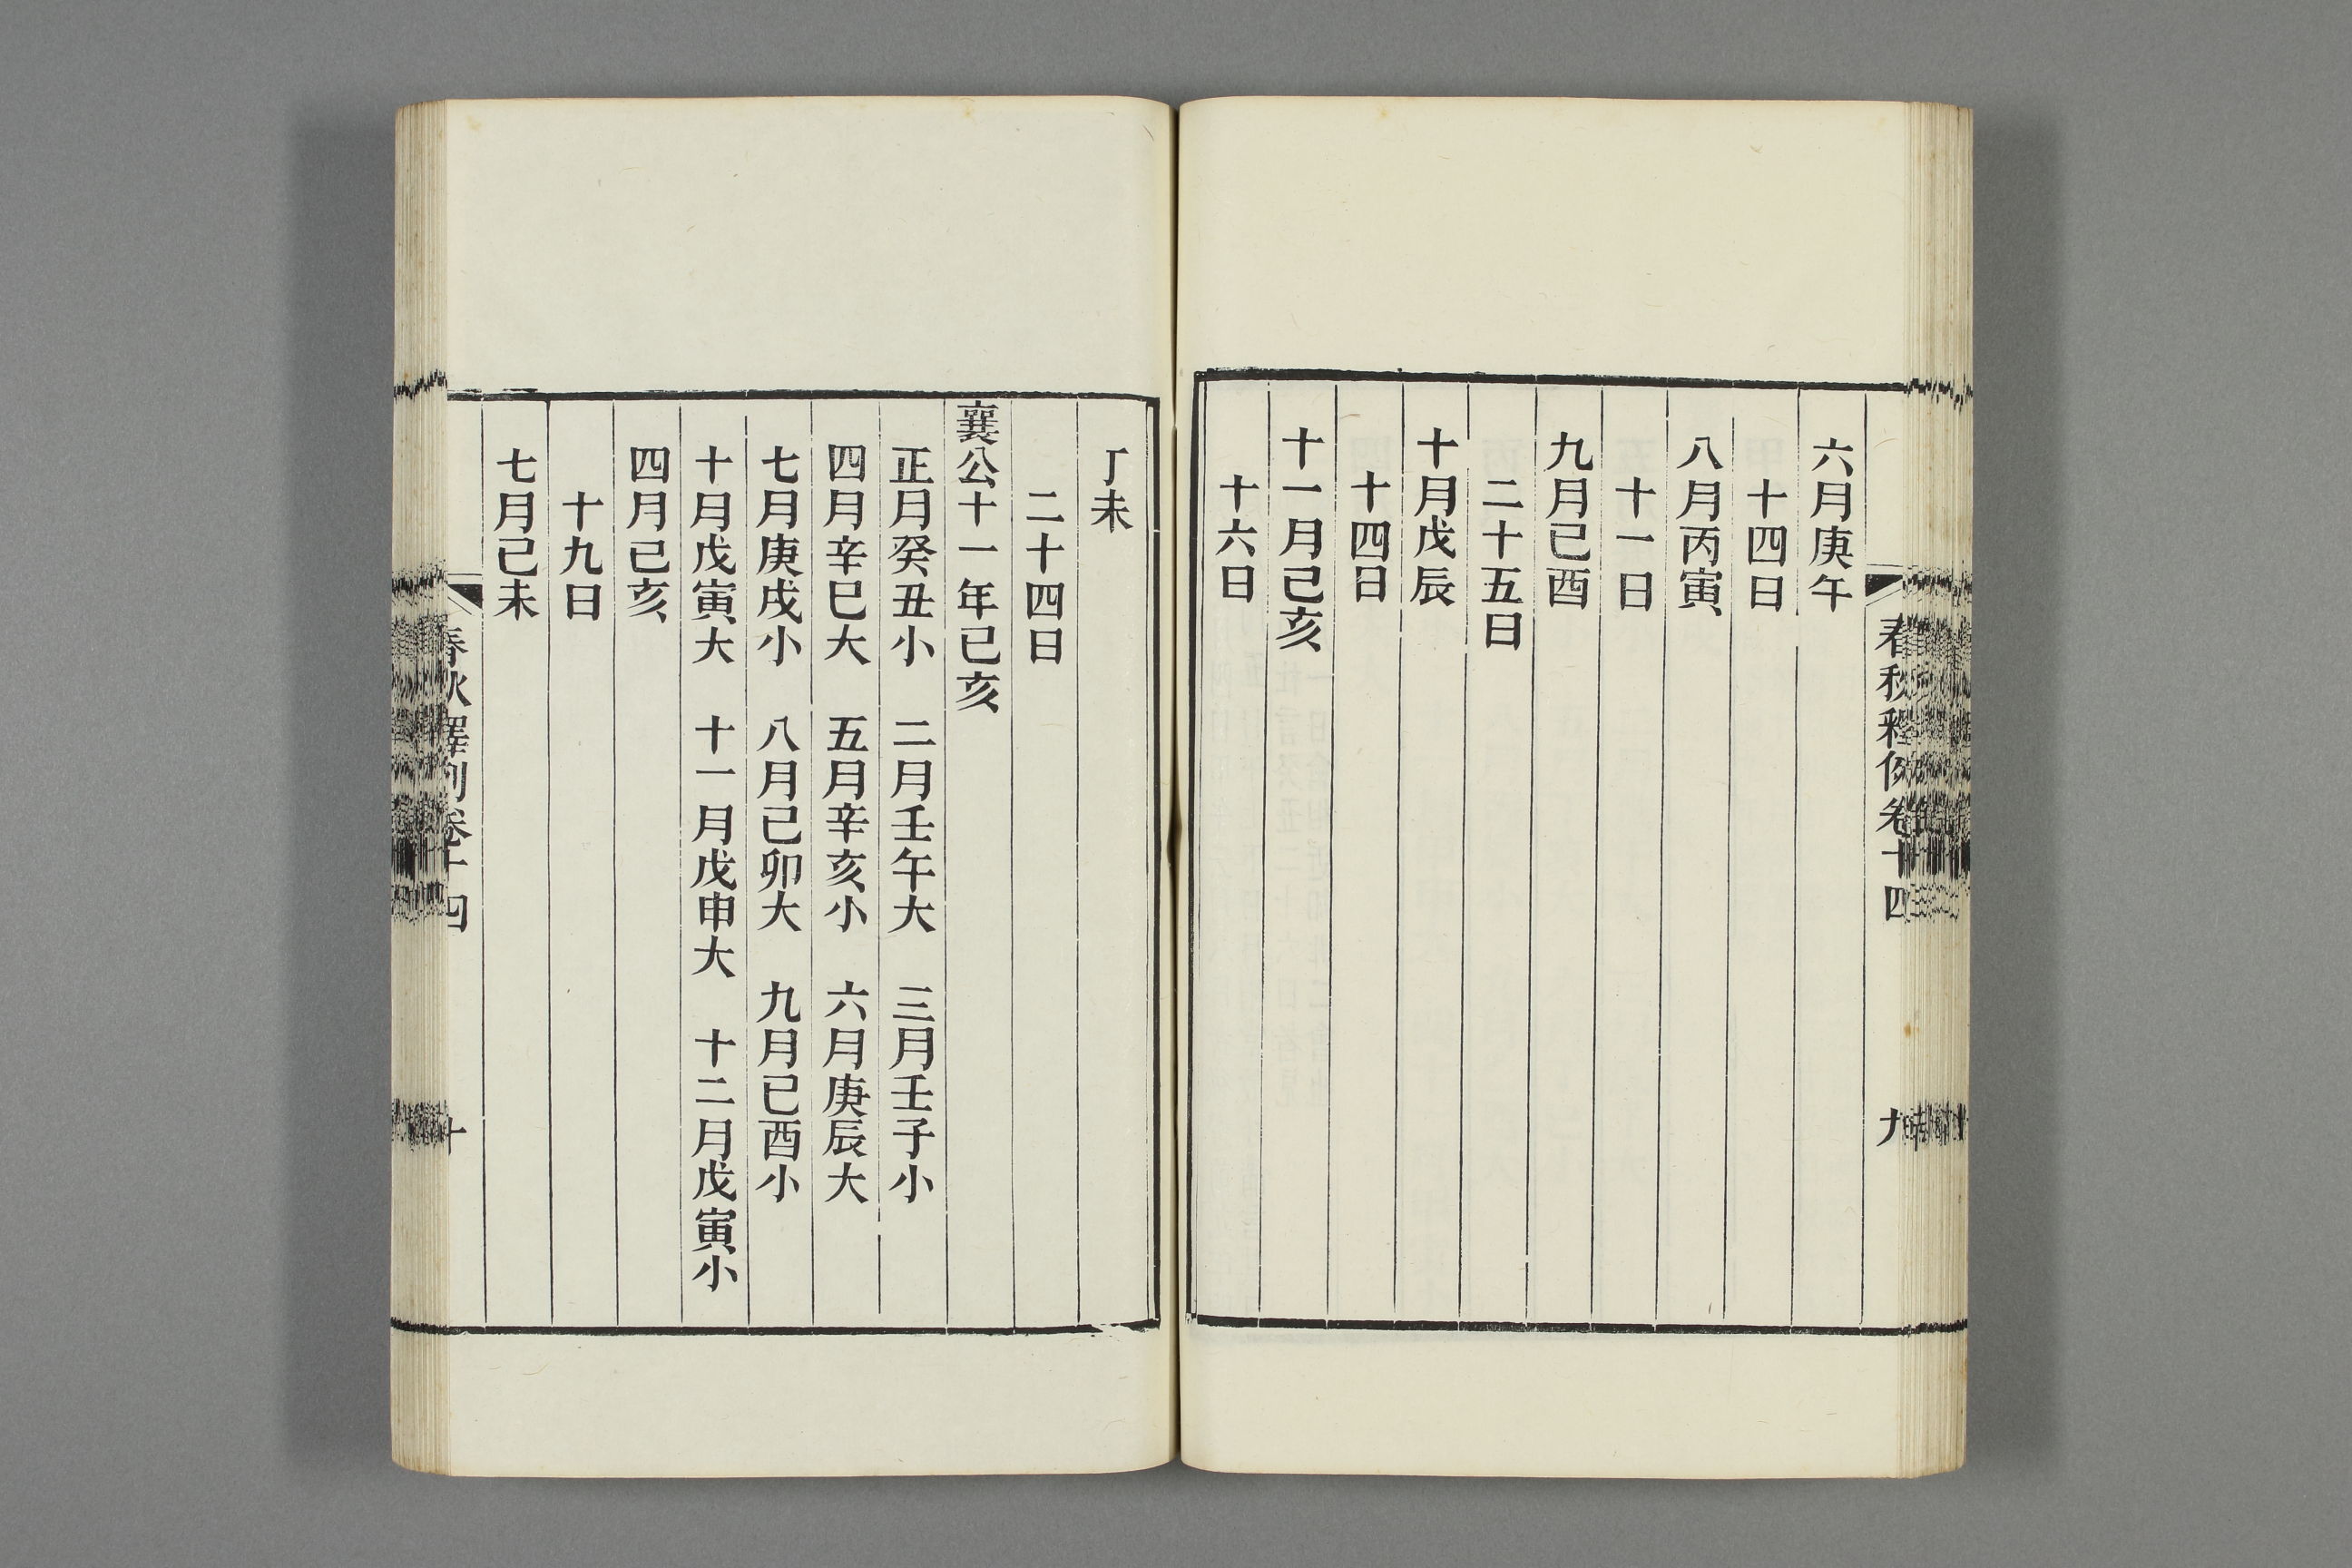 春秋釋例卷十四
九
六月庚午
十四日
八月丙寅
十一日
九月己酉
二十五日
十月戊辰
十四日
十一月己亥
十六日
丁未
二十四日
襄公十一年己亥
正月癸丑小　二月壬午大　三月壬子小
四月辛巳大　五月辛亥小　六月庚辰大
七月庚戌小　八月己卯大　九月己酉小
十月戊寅大　十一月戊申大　十二月戊寅小
四月己亥
十九日
七月己未
春秋釋例卷十四
十